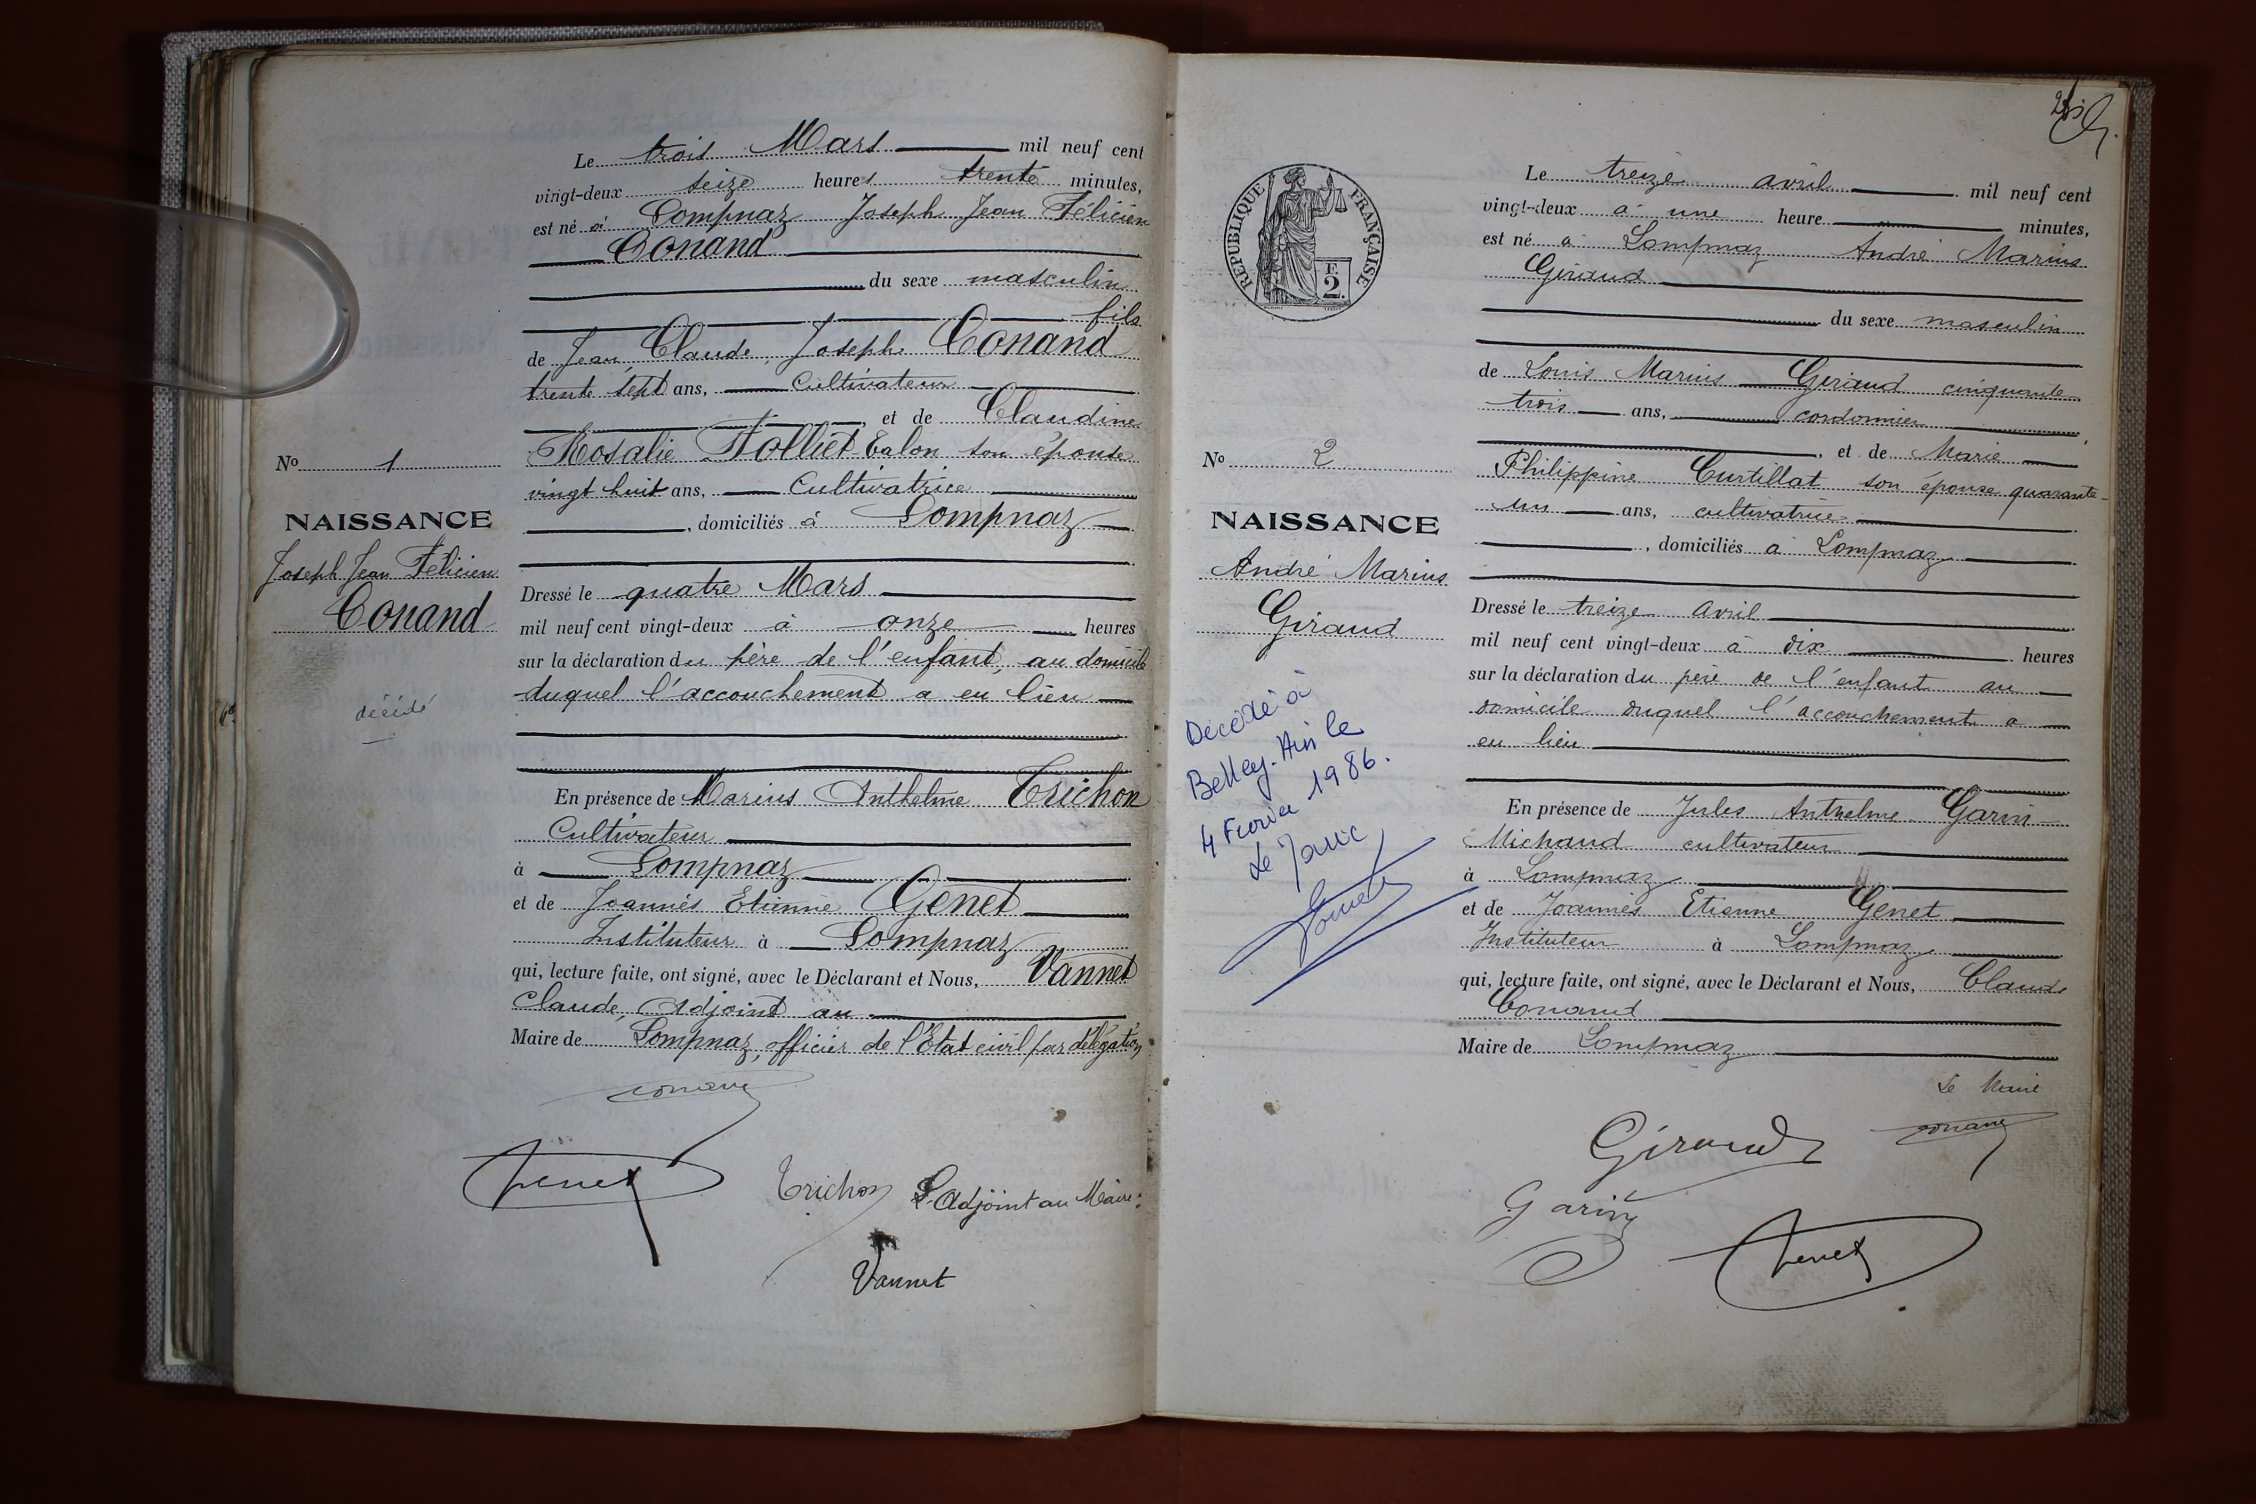 Le trois Mars mil neuf cent
vingt-deux seize heures trente minutes,
est né à Lompnaz Joseph Jean Félicien
Conand
du sexe masculin
fils
de Jean, Claude, Joseph Conand
trente sept ans, Cultivateur
et de Claudine
Rosalie Folliet-Talon son épouse
vingt huit ans, Cultivatrice
, domiciliés à Lompnaz
Dressé le quatre Mars
mil neuf cent vingt-deux à onze heures
sur la déclaration du père de l'enfant, au domicile
duquel l'accouchement a eu lieu
En présence de Marius Anthelme Trichon
Cultivateur
à Lompnaz
et de Joannès Etienne Genet
Instituteur à Lompnaz
qui, lecture faite, ont signé, avec le Déclarant et Nous, Vannet
Claude, Adjoint au
Maire de Lompnaz, officier de l'Etat civil par délégation
Conand
Genet
Trichon
L'Adjoint au Maire:
Vannet
No 1
NAISSANCE
Joseph Jean Félicien
Conand
décédé
RÉPUBLIQUE FRANÇAISE
F.
2
No 2
NAISSANCE
André Marius
Giraud
Décédé à
Belley-Ain le
4 Février 1986.
Le Maire
Le treize avril mil neuf cent
vingt-deux à une heure minutes,
est né à Lompnaz André Marius
Giraud
du sexe masculin
de Louis Marius Giraud cinquante
trois ans, cordonnier
, et de Marie
Philippine Curtillat son épouse quarante-
un ans, cultivatrice
, domiciliés à Lompnaz
Dressé le treize avril
mil neuf cent vingt-deux à dix heures
sur la déclaration du père de l'enfant au
domicile duquel l'accouchement a
eu lieu
En présence de Jules Anthelme Garin
Michaud cultivateur
à Lompnaz
et de Joannès Etienne Genet
Instituteur à Lompnaz
qui, lecture faite, ont signé, avec le Déclarant et Nous, Claude
Conand
Maire de Lompnaz
Le Maire
Conand
Giraud
Garin
Genet